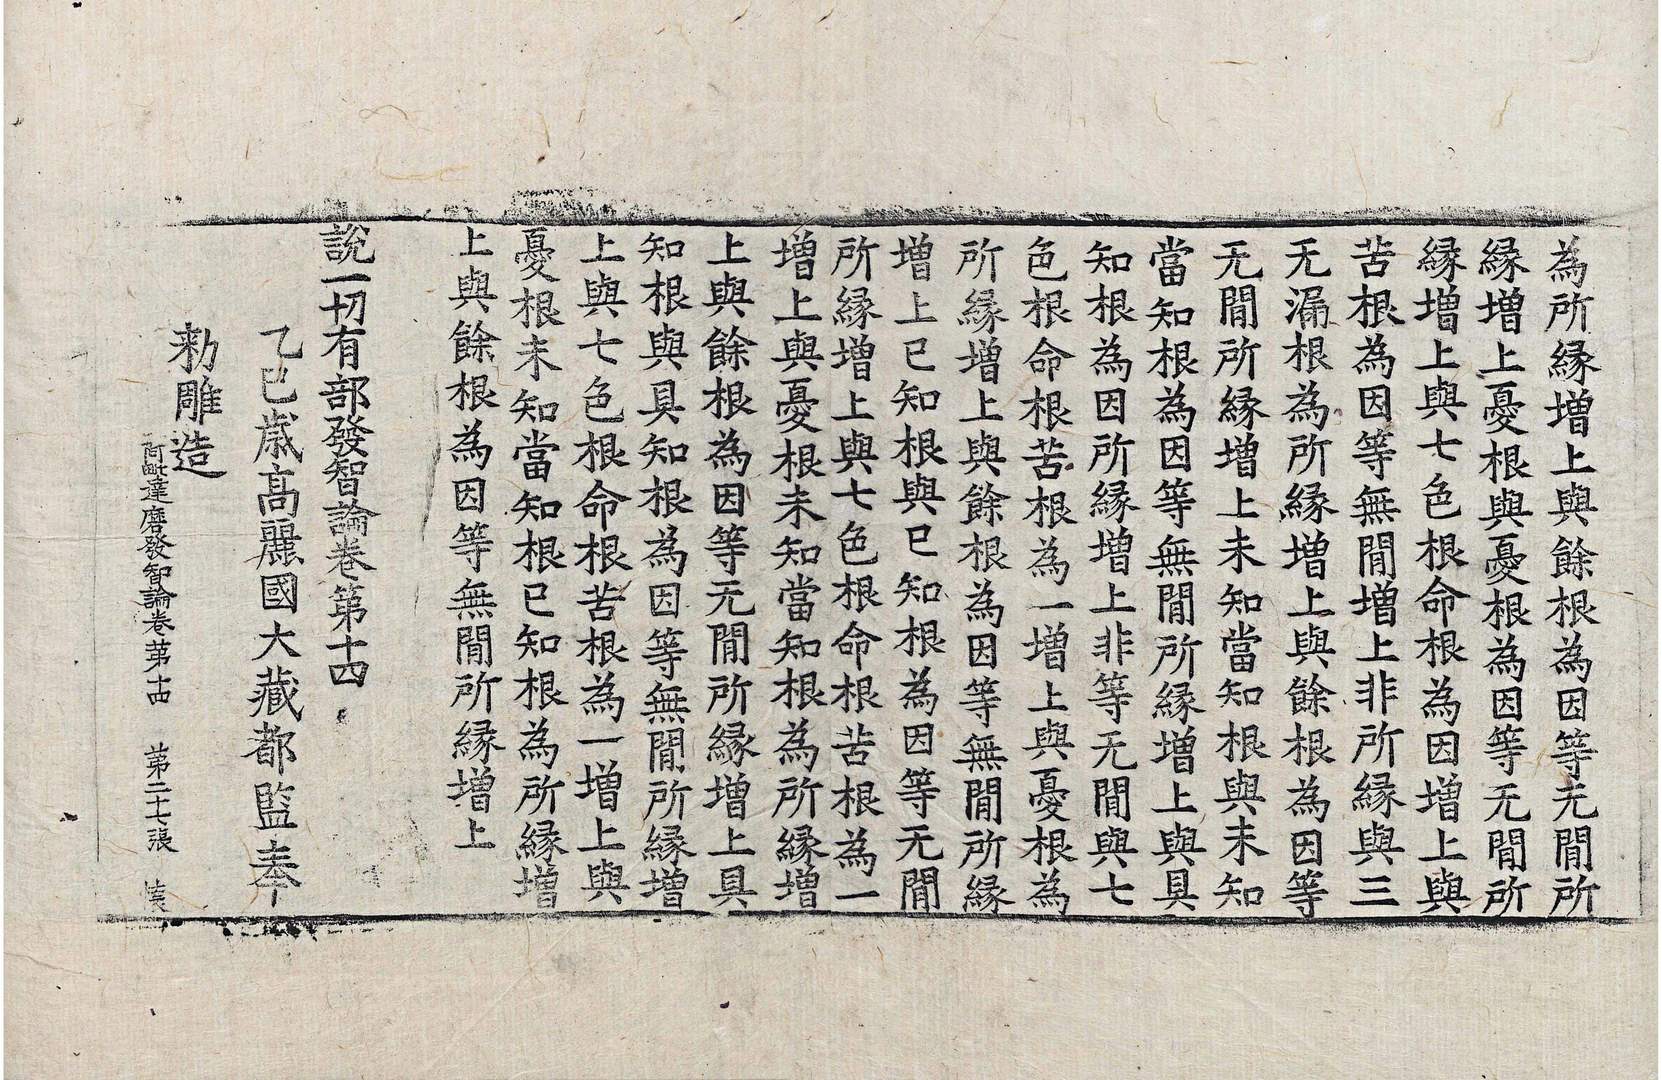 為所縁增上與餘根為因等无閒所
縁增上憂根與憂根為因等无閒所
縁增上與七色根命根為因增上與
苦根為因等無閒增上非所縁與三
无漏根為所縁增上與餘根為因等
无閒所縁增上未知當知根與未知
當知根為因等無閒所縁增上與具
知根為因所縁增上非等无閒與七
色根命根苦根為一增上與憂根為
所縁增上與餘根為因等無閒所縁
增上已知根與已知根為因等无閒
所縁增上與七色根命根苦根為一
增上與憂根未知當知根為所縁增
上與餘根為因等无閒所縁增上具
知根與具知根為因等無閒所縁增
上與七色根命根苦根為一增上與
憂根未知當知根已知根為所縁增
上與餘根為因等無閒所縁增上
說一切有部發智論卷第十四
乙巳歲高麗國大藏都監奉
勅雕造
阿毗達磨發智論卷第十四 第二十七張